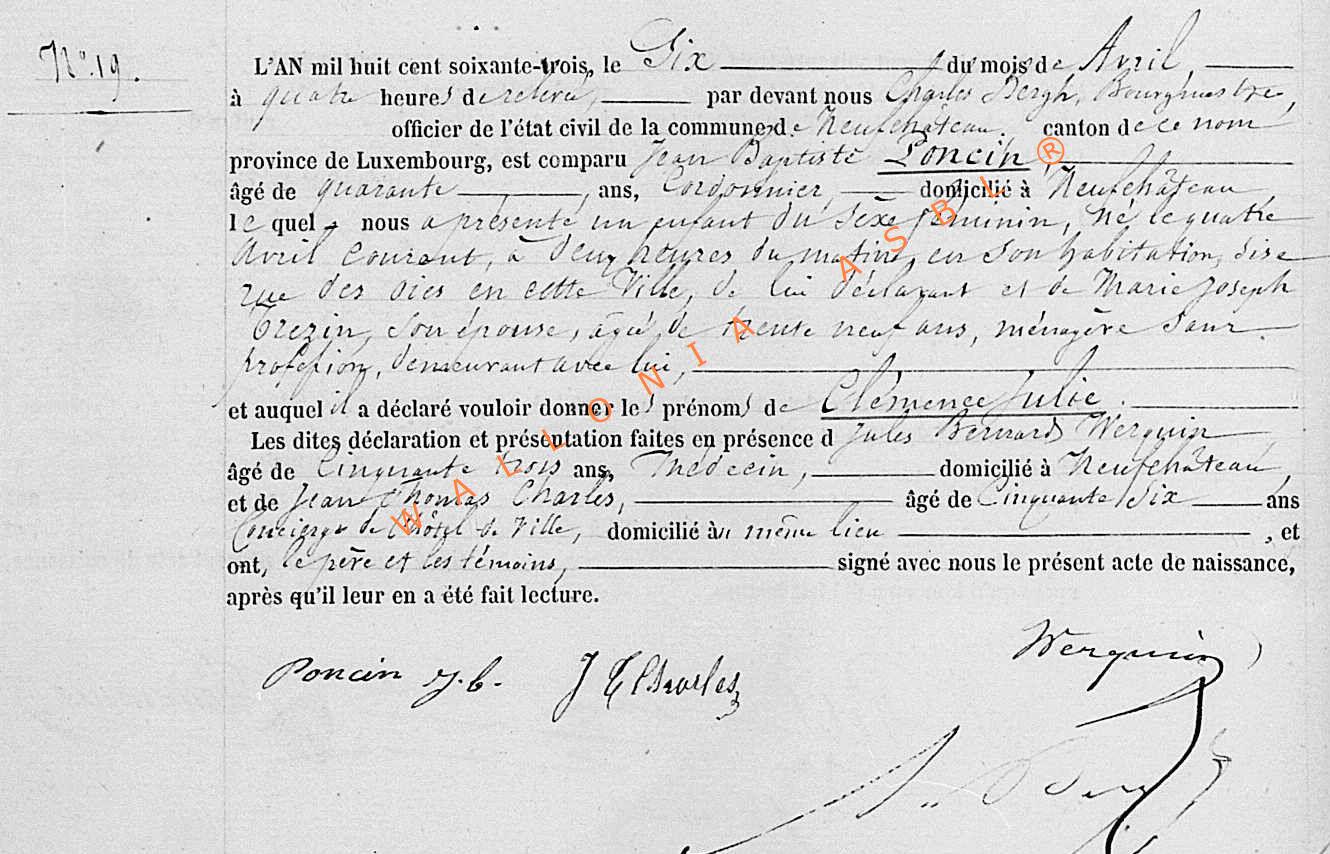 N° 19.
L'AN mil huit cent soixante-trois, le Six du mois de Avril,
à quatre heures de relevée, par devant nous Charles Bergh, Bourgmestre,
officier de l'état civil de la commune de Neufchâteau, canton de ce nom
province de Luxembourg, est comparu Jean Baptiste Poncin,
âgé de quarante ans, Cordonnier, domicilié à Neufchâteau
le quel nous a présenté un enfant du sexe féminin, né le quatre
Avril courant, à deux heures du matin, en son habitation, sise
rue des oies en cette Ville, de lui déclarant et de Marie Joseph
Trezin, son épouse, âgée de trente neuf ans, ménagère sans
profession, demeurant avec lui,
et auquel il a déclaré vouloir donner les prénoms de Clémence Julie.
Les dites déclaration et présentation faites en présence d Jules Bernard Werquin
âgé de Cinquante trois ans, Médecin, domicilié à Neufchâteau
et de Jean Thomas Charles, âgé de Cinquante Six ans
Concierge de l'hôtel de Ville, domicilié au même lieu, et
ont, le père et les témoins, signé avec nous le présent acte de naissance,
après qu'il leur en a été fait lecture.
Werquin
Poncin J.B. J T Charles
WALLONIA ASBL ®